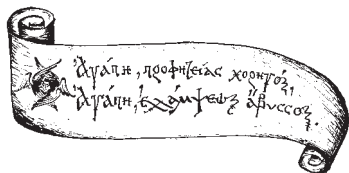 Ἀγάπη, προφητείας χορηγός,
Ἀγάπη, ἐλλάμψεως ἄβυσσος.